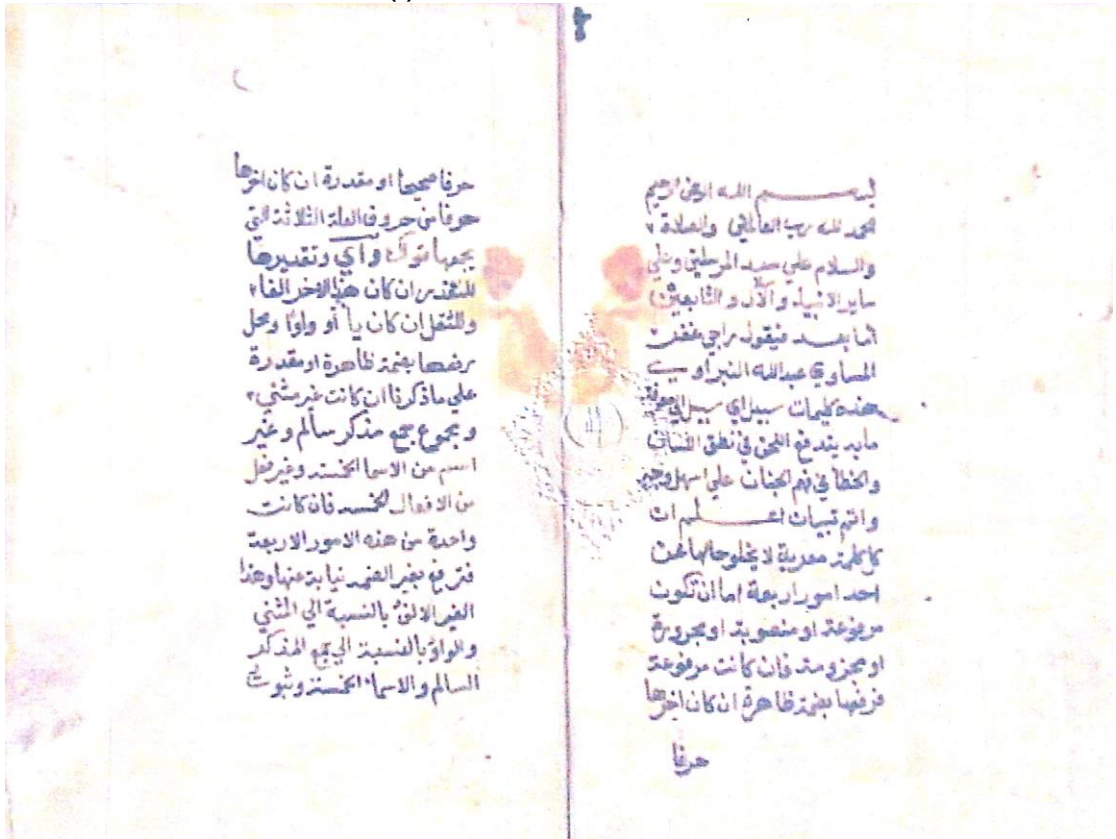 بسم الله الرحمن الرحيم
الحمد لله رب العالمين والصلاة
والسلام علي سيد المرسلين وعلي
ساير الانبياء والآل والتابعين
اما بعد فيقول راجي غفر
المساوي عبدالله النبراوي
هذه كليمات سبيل اي سبيل الي معرفة
ما به يندفع اللحن في نطق اللسان
والخطا في فهم الجنان علي اسهل وجه
واتم تبيان اعلم ان
كل كلمة معربة لا يخلو حالها عن
احد امور اربعة اما ان تكون
مرفوعة او منصوبة او مجرورة
او مجزومة فان كانت مرفوعة
فرفعها بضمة ظاهرة ان كان اخرها
حرفا
حرفا صحيحا او مقدرة ان كان اخرها
حرفا من حروف العلة الثلاثة التي
يجمعها قولك واي وتقديرها
للتعذر ان كان هذا الاخر الفا
وللثقل ان كان يا أو واوا ومحل
رفعها بضمة ظاهرة او مقدرة
علي ما ذكرنا ان كانت غير مثني
ومجموع جمع مذكر سالم وغير
اسم من الاسما الخمسة وغير فعل
من الافعال الخمسة فان كانت
واحدة من هذه الامور الاربعة
فترفع بغير الضمة نيابة عنها وهذا
الغير الالف بالنسبة الي المثني
والواو بالنسبة الي جمع المذكر
السالم والاسماء الخمسة وثبوت